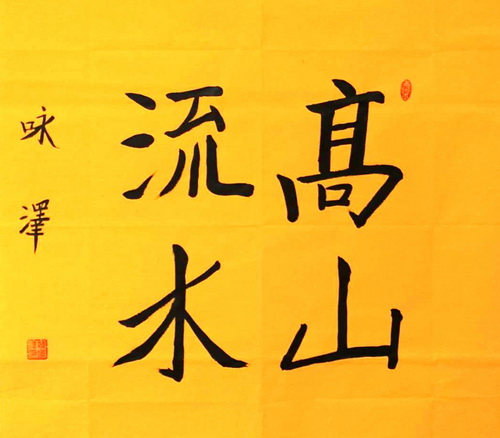 髙山
流水
咏澤